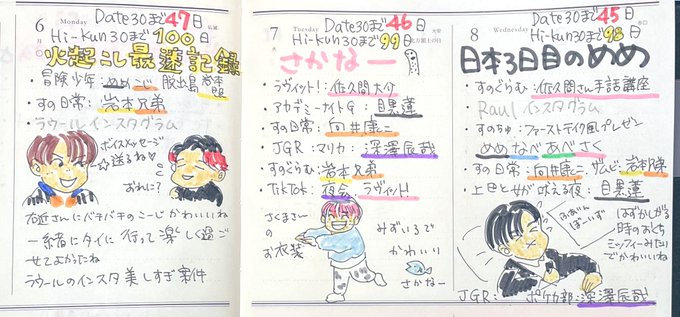 6 Monday
Date30まで47日
Hi-Kun30まで100日
火起こし最速記録
・冒険少年：めめこじ 脱出島 岩本
・すの日常：岩本兄弟
・ラウールインスタグラム
ボイスメッセージ
送るね
おれに？
右近さんにベタベタのこーじかわいいね
一緒にタイに行って楽しく過ご
せてよかったね
ラウールのインスタ美しすぎ案件
7 Tuesday
Date30まで46日
Hi-Kun30まで99日
さかなー
・ラヴィット!：佐久間大介
・アカデミーナイトG：目黒蓮
・すの日常：向井康二
・JGR：マリカ：深澤辰哉
・すぐらむ：岩本兄弟
・TikTok：夜会 ラヴィット!
さくまさん
の
お衣装
みずいろで
かわいい
さかなー
8 Wednesday
Date30まで45日
Hi-Kun30まで98日
日本3日目のめめ
・すのぐらむ：佐久間さん手話講座
・Raulインスタグラム
・すのちゅ：ファーストテイク風プレゼン
めめなべあべさく
・すの日常：向井康二、ゾムビ：岩本
・上田と女が吠える夜：目黒蓮
はずかしがる
時のおくち
ミッフィーみたい
でかわいいね
JGR：ポケカ部：深澤辰哉